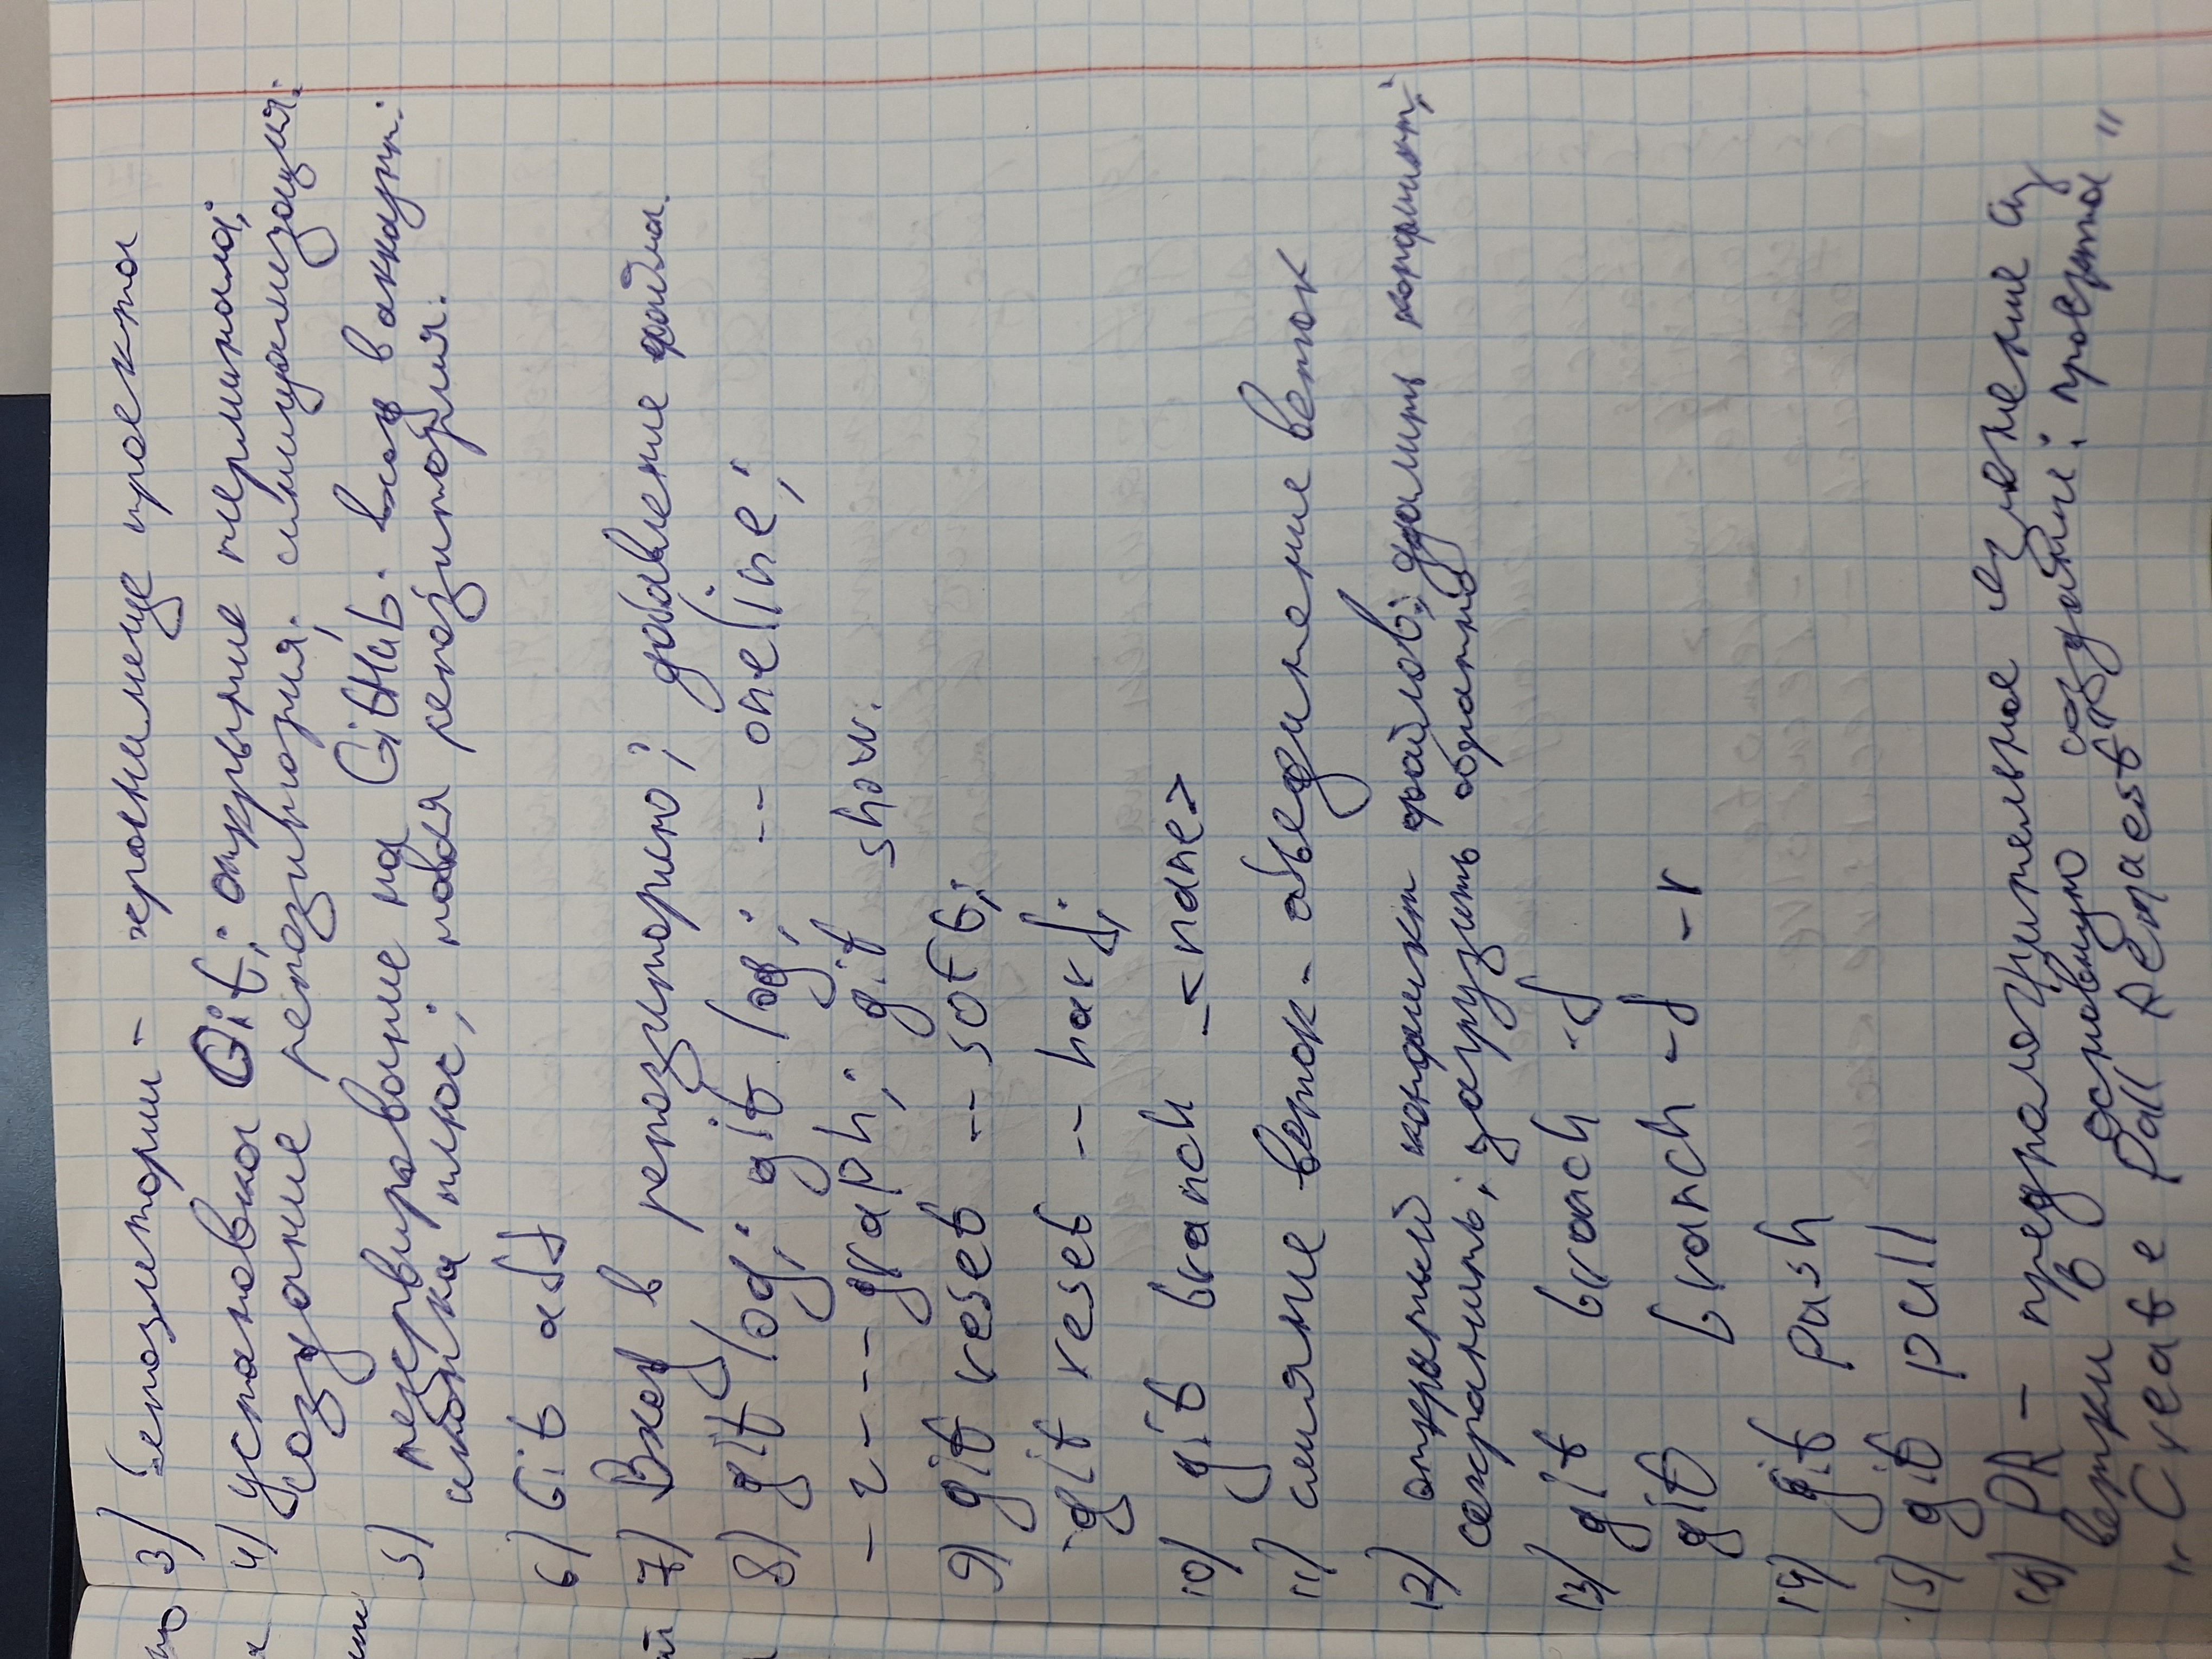 3) Репозитории - хранилище проекта
4) установка Git; открытие терминала;
создание репозитория; инициализация:
5) резервирование на GitHub. вход в аккаунт:
иконка плюс; новая репозитория.
6) Git add
7) Вход в репозиторию; добавление файла.
8) git log; git log; -- oneline;
---- graph; git show.
9) git reset -- soft;
git reset -- hard;
10) git branch <name>
11) слияние веток - объединение веток
12) открытый конфликт файлов; удалить конфликт;
сохранить; загрузить обратно
13) git branch -d
git branch -d -r
14) git push
15) git pull
16) PR - предположительное изменение из
ветки в основную создание; проекта "
"Create Pull Request"